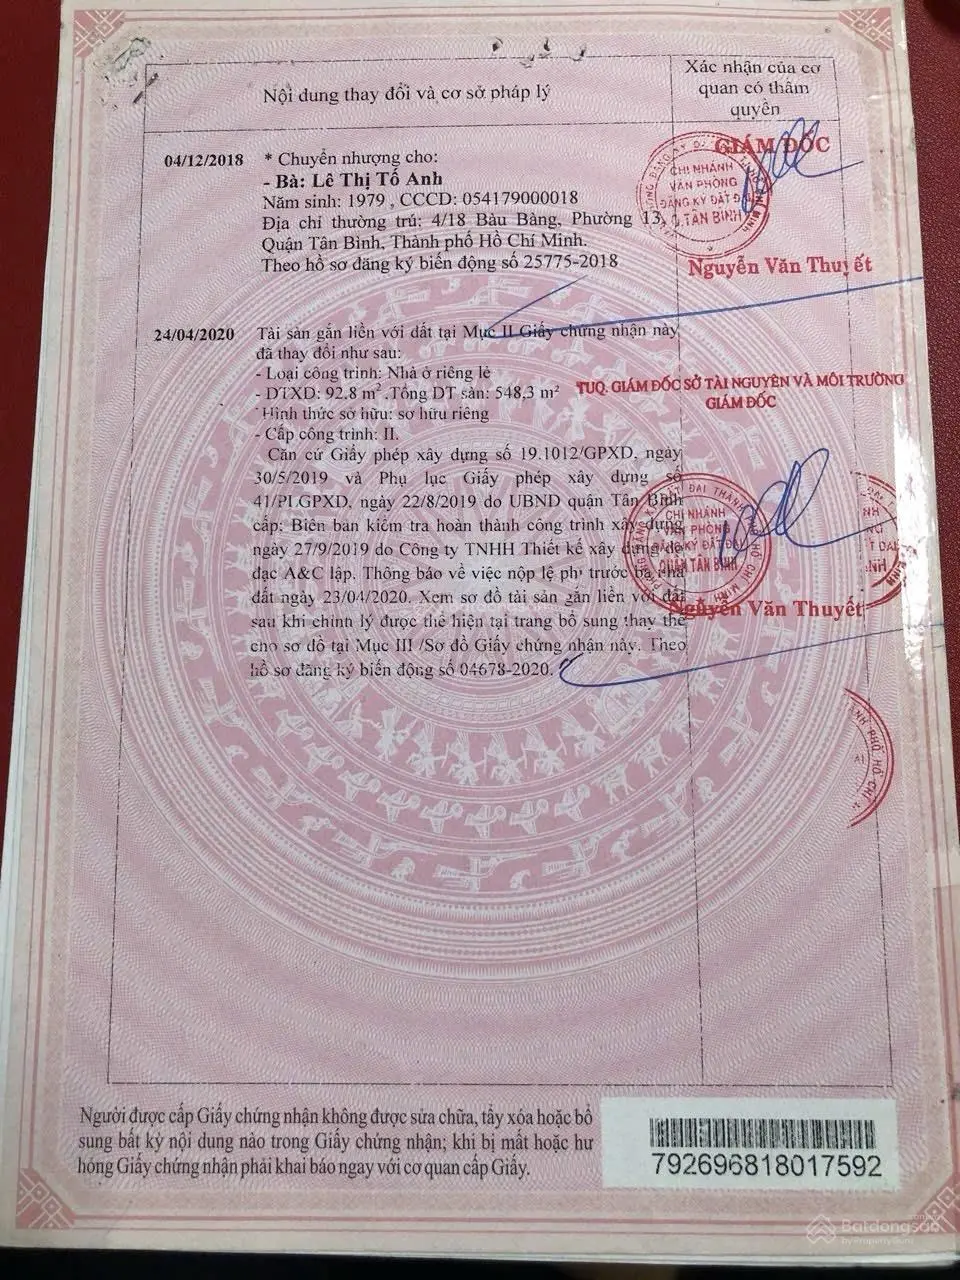 Nội dung thay đổi và cơ sở pháp lý
Xác nhận của cơ
quan có thẩm
quyền
04/12/2018
* Chuyển nhượng cho:
- Bà: Lê Thị Tố Anh
Năm sinh: 1979 , CCCD: 054179000018
Địa chỉ thường trú: 4/18 Bàu Bàng, Phường 13,
Quận Tân Bình, Thành phố Hồ Chí Minh.
Theo hồ sơ đăng ký biến động số 25775-2018
GIÁM ĐỐC
CHI NHÁNH
VĂN PHÒNG
ĐĂNG KÝ ĐẤT ĐAI
Q.TÂN BÌNH
Nguyễn Văn Thuyết
24/04/2020
Tài sản gắn liền với đất tại Mục II Giấy chứng nhận này
đã thay đổi như sau:
- Loại công trình: Nhà ở riêng lẻ
- DTXD: 92.8 m² .Tổng DT sàn: 548,3 m²
- Hình thức sở hữu: sở hữu riêng
- Cấp công trình: II.
Căn cứ Giấy phép xây dựng số 19.1012/GPXD, ngày
30/5/2019 và Phụ lục Giấy phép xây dựng số
41/PLGPXD, ngày 22/8/2019 do UBND quận Tân Bình
cấp; Biên bản kiểm tra hoàn thành công trình xây dựng
ngày 27/9/2019 do Công ty TNHH Thiết kế xây dựng đo
đạc A&C lập. Thông báo về việc nộp lệ phí trước bạ nhà
đất ngày 23/04/2020. Xem sơ đồ tài sản gắn liền với đất
sau khi chỉnh lý được thể hiện tại trang bổ sung thay thế
cho sơ đồ tại Mục III /Sơ đồ Giấy chứng nhận này. Theo
hồ sơ đăng ký biến động số 04678-2020.
TUQ. GIÁM ĐỐC SỞ TÀI NGUYÊN VÀ MÔI TRƯỜNG
GIÁM ĐỐC
CHI NHÁNH
VĂN PHÒNG
ĐĂNG KÝ ĐẤT ĐAI
QUẬN TÂN BÌNH
Nguyễn Văn Thuyết
Người được cấp Giấy chứng nhận không được sửa chữa, tẩy xóa hoặc bổ
sung bất kỳ nội dung nào trong Giấy chứng nhận; khi bị mất hoặc hư
hỏng Giấy chứng nhận phải khai báo ngay với cơ quan cấp Giấy.
792696818017592
Batdongsan
by PropertyGuru